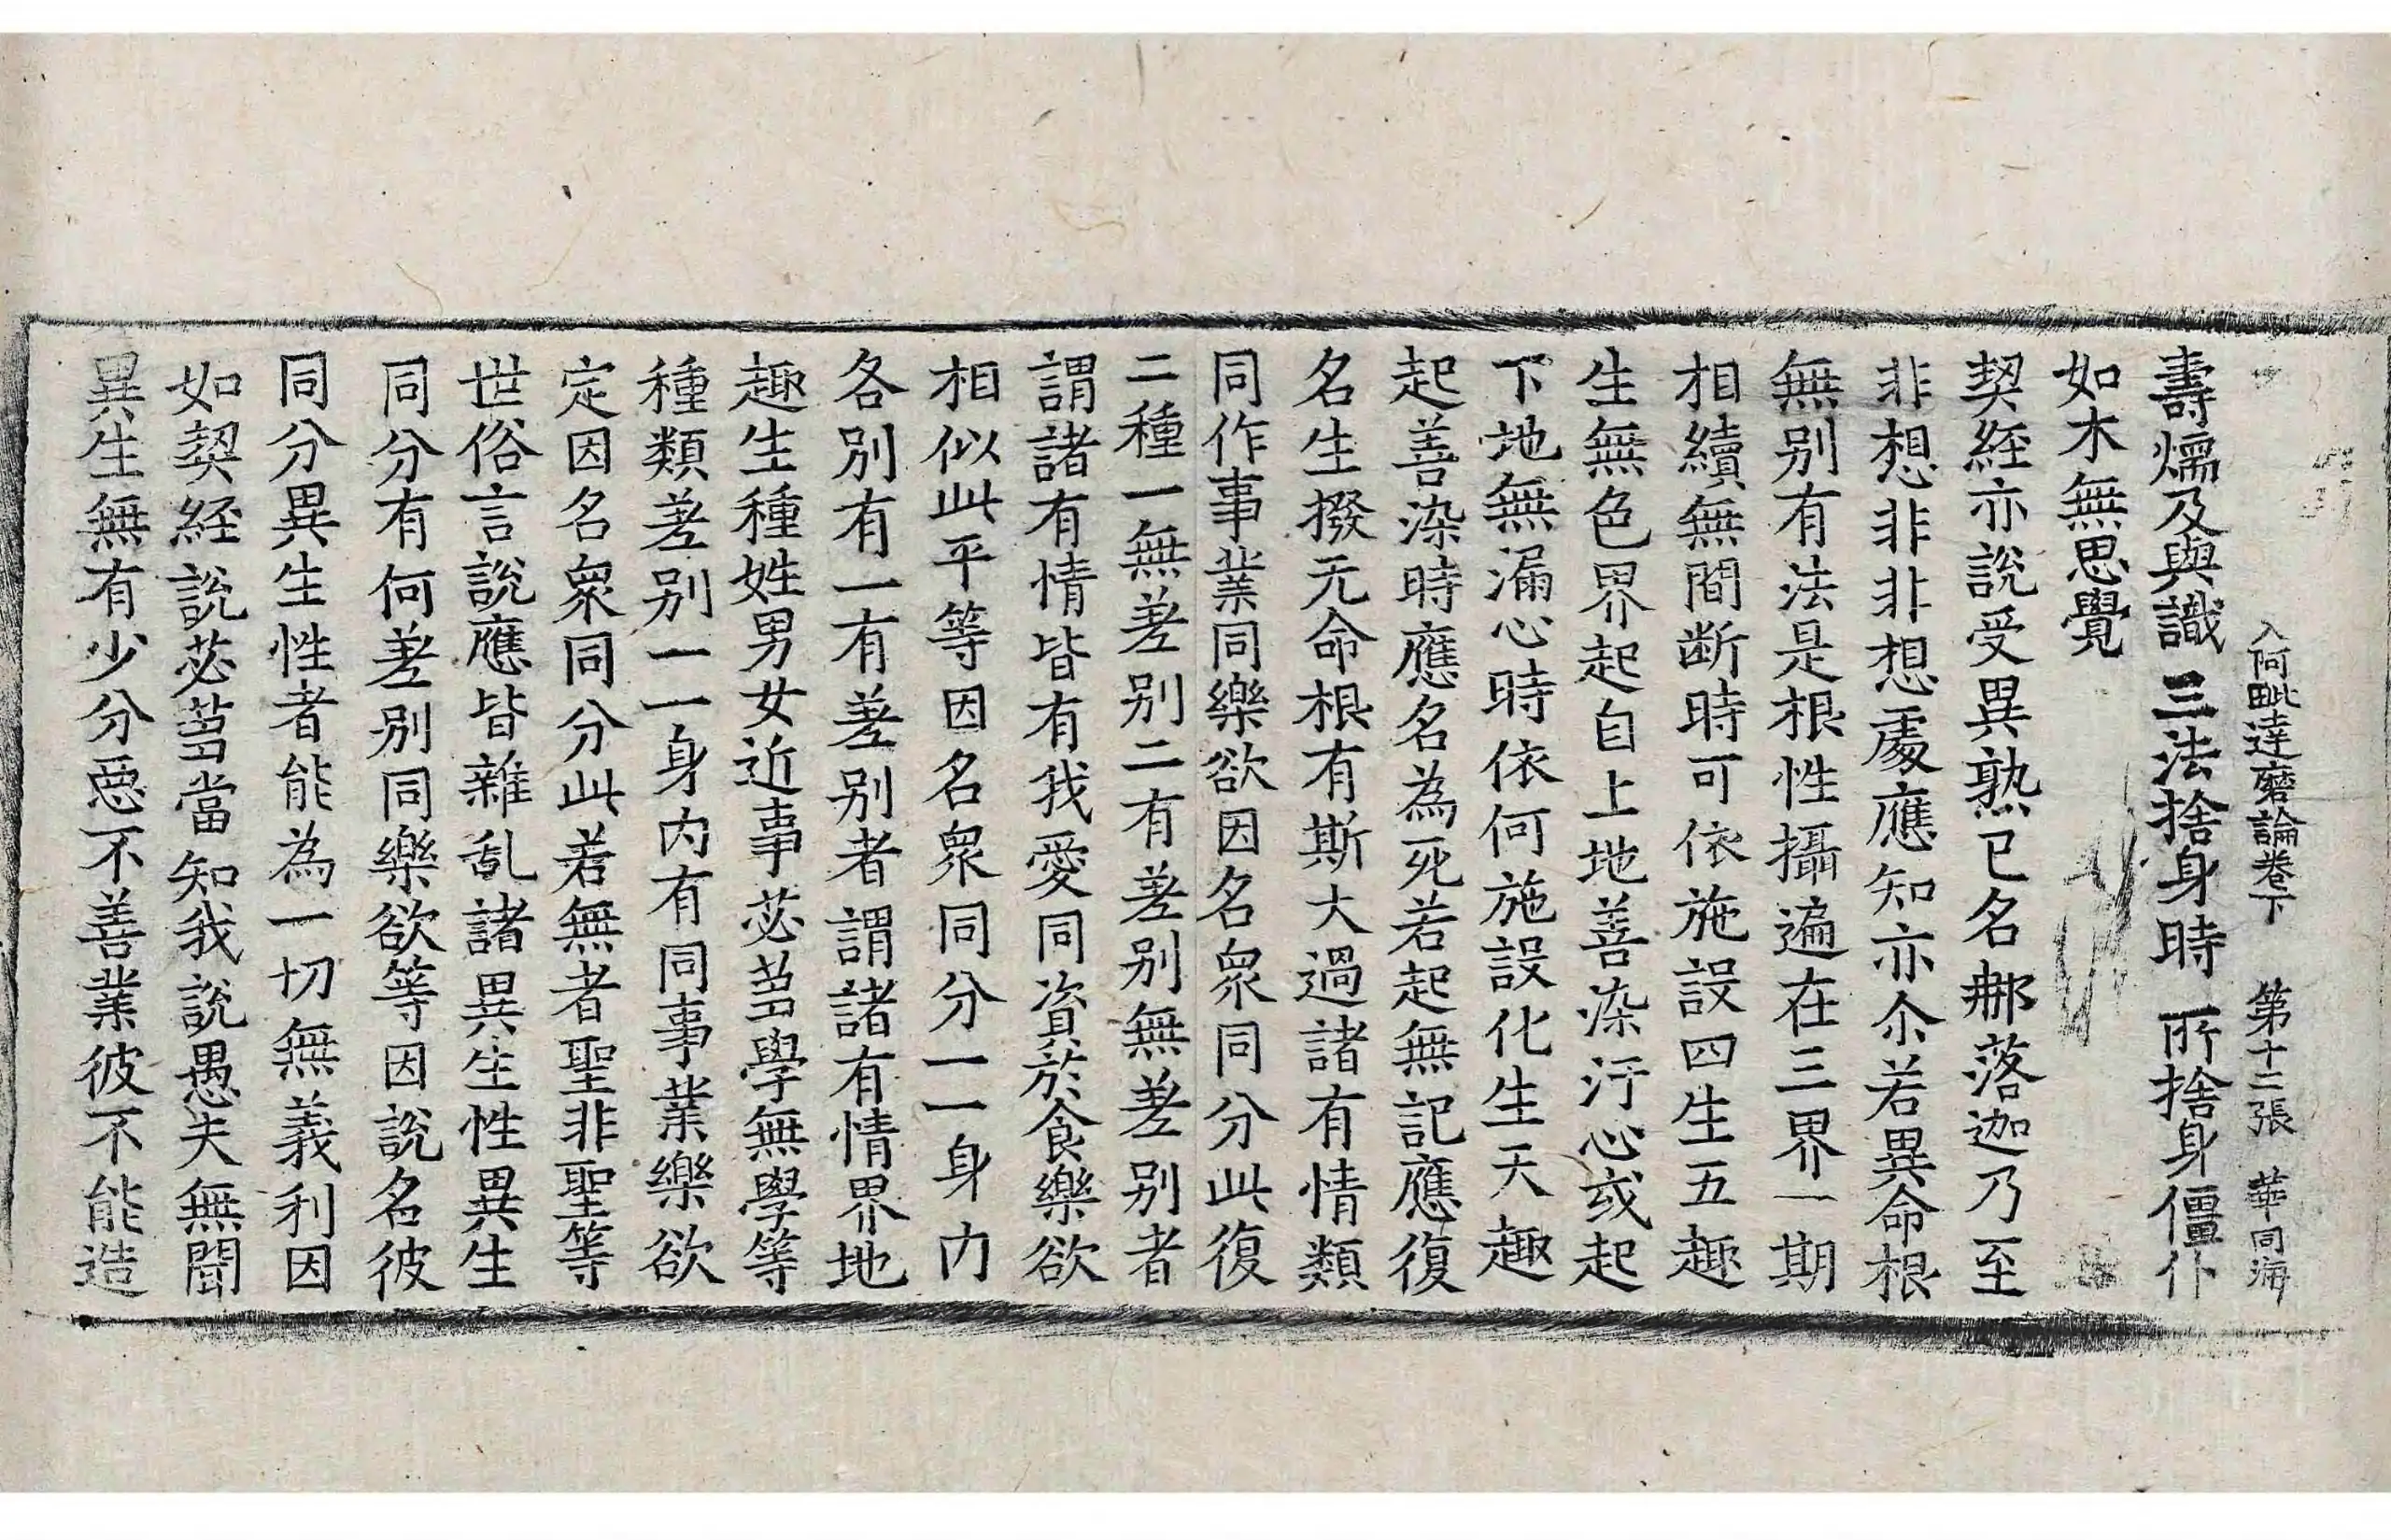 入阿毗達磨論卷下　第十二張　華　同海
壽煗及與識　三法捨身時　所捨身僵仆
如木無思覺
契經亦說受異熟已名挪落迦乃至
非想非非想處應知亦尒若異命根
無別有法是根性攝遍在三界一期
相續無間斷時可依施設四生五趣
生無色界起自上地善染汙心或起
下地無漏心時依何施設化生天趣
起善染時應名為死若起無記應復
名生撥无命根有斯大過諸有情類
同作事業同樂欲因名衆同分此復
二種一無差別二有差別無差別者
謂諸有情皆有我愛同資於食樂欲
相似此平等因名衆同分一一身內
各別有一有差別者謂諸有情界地
趣生種姓男女近事苾蒭學無學等
種類差別一一身內有同事業樂欲
定因名衆同分此若無者聖非聖等
世俗言說應皆雜乱諸異生性異生
同分有何差別同樂欲等因說名彼
同分異生性者能為一切無義利因
如契經說苾蒭當知我說愚夫無聞
異生無有少分惡不善業彼不能造